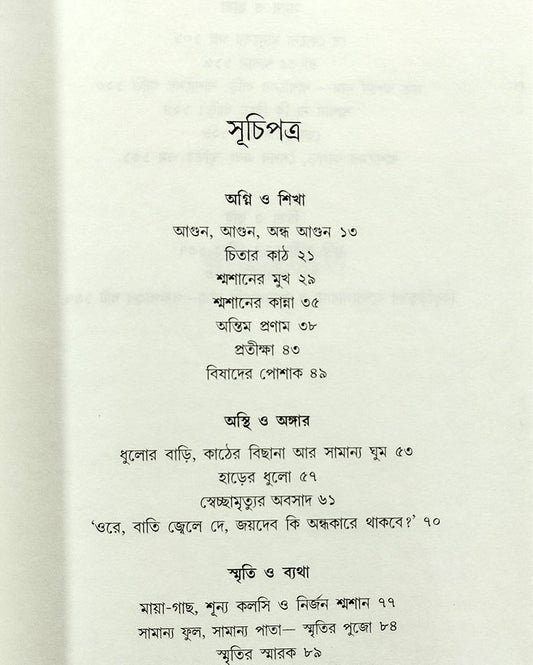 সূচিপত্র
অগ্নি ও শিখা
আগুন, আগুন, অন্ধ আগুন ১৩
চিতার কাঠ ২১
শ্মশানের মুখ ২৯
শ্মশানের কান্না ৩৫
অন্তিম প্রণাম ৩৮
প্রতীক্ষা ৪৩
বিষাদের পোশাক ৪৯
অস্থি ও অঙ্গার
ধুলোর বাড়ি, কাঠের বিছানা আর সামান্য ঘুম ৫৩
হাড়ের ধুলো ৫৭
স্বেচ্ছামৃত্যুর অবসাদ ৬১
‘ওরে, বাতি জ্বেলে দে, জয়দেব কি অন্ধকারে থাকবে?’ ৭০
স্মৃতি ও ব্যথা
মায়া-গাছ, শূন্য কলসি ও নির্জন শ্মশান ৭৭
সামান্য ফুল, সামান্য পাতা— স্মৃতির পুজো ৮৪
স্মৃতির স্মারক ৮৯